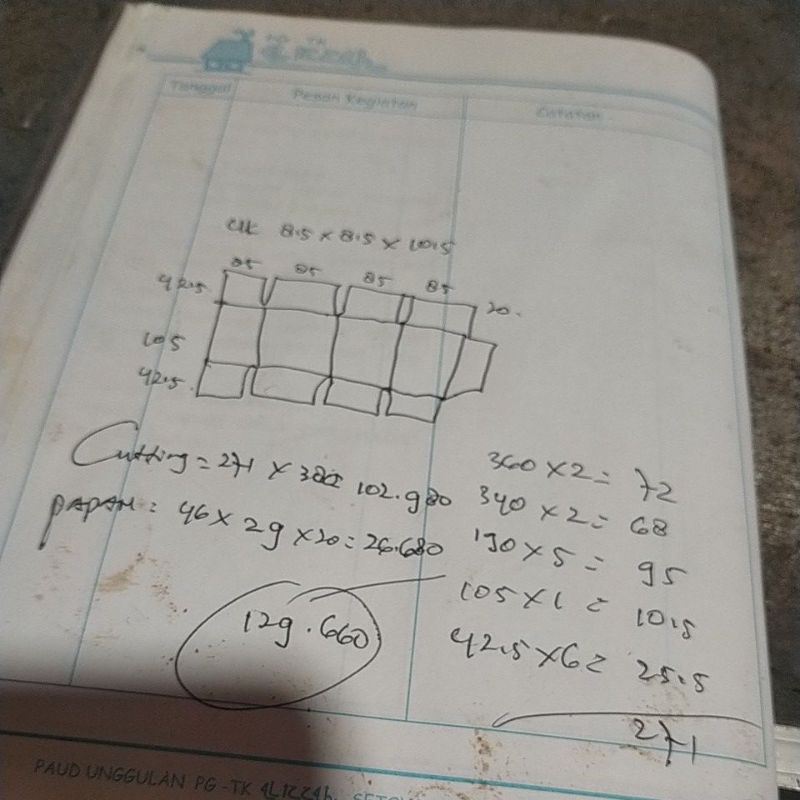 PG TK
Tanggal
Pesan Kegiatan
Catatan
UK 8.5 x 8.5 x 10.5
85 85 85 85
42.5
20.
105
42.5
Cutting = 271 x 380 = 102.980
PAPAN = 46 x 29 x 20 = 26.680
129.660
360 x 2 = 72
340 x 2 = 68
190 x 5 = 95
105 x 1 = 10.5
42.5 x 6 = 25.5
271
PAUD UNGGULAN PG-TK